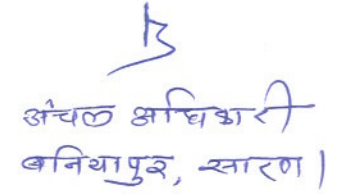 अंचल अधिकारी
बनियापुर, सारण।